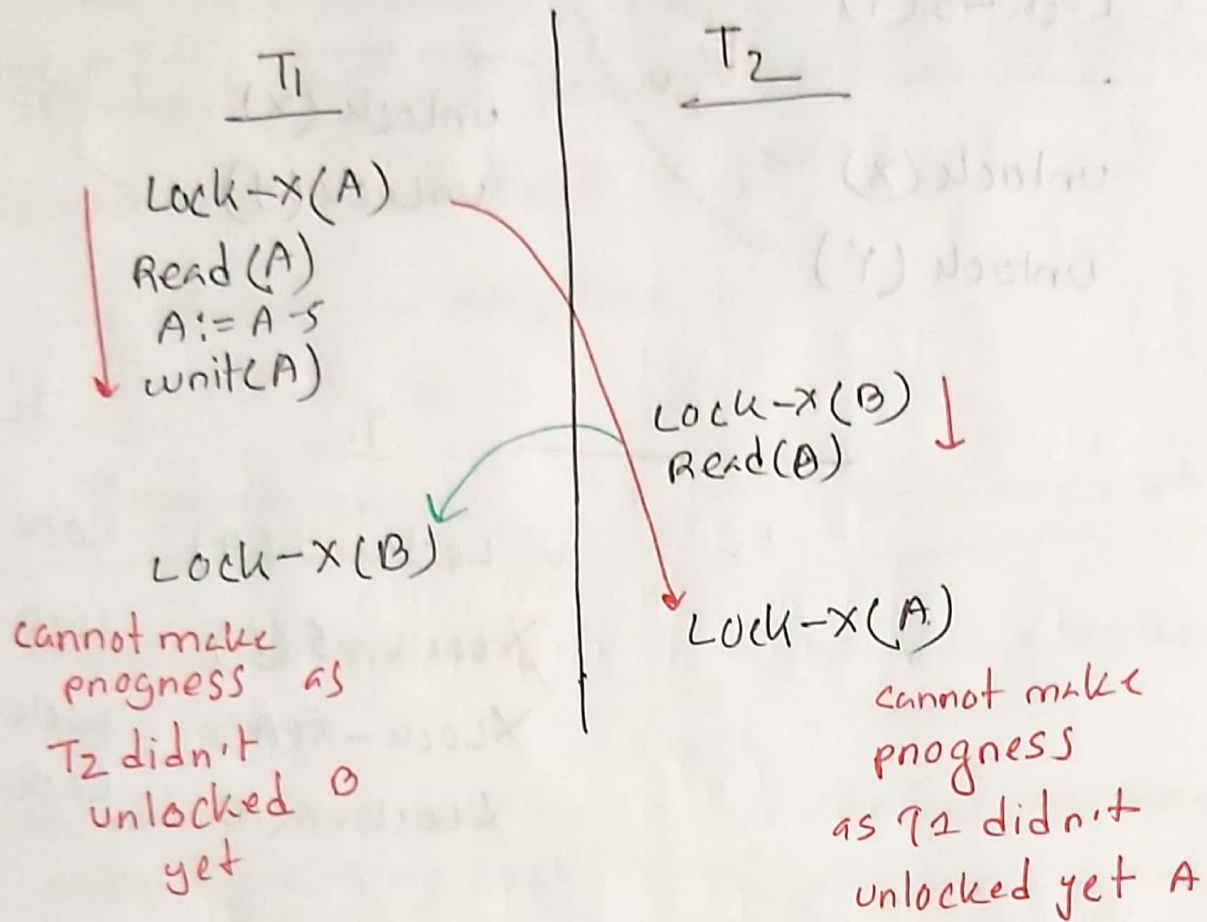 T1
Lock-X(A)
Read(A)
A:= A-5
write(A)
Lock-X(B)
cannot make
progress as
T2 didn't
unlocked B
yet
T2
Lock-X(B)
Read(B)
Lock-X(A)
cannot make
progress
as T1 didn't
unlocked yet A
unlock (X)
unlock (Y)